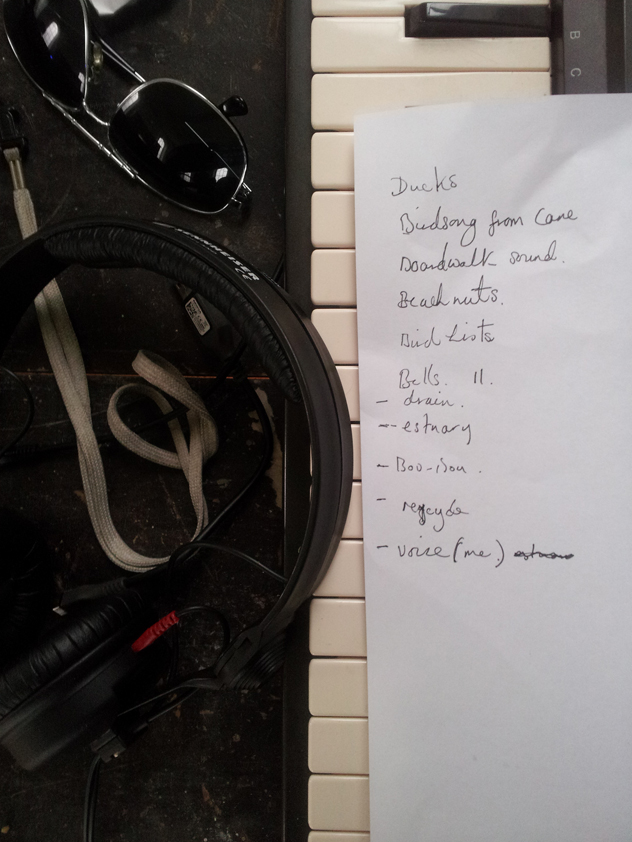 B
C
SENNHEISER
Ducks
Birdsong from Cane
Boardwalk sound.
Beachnuts.
Bird Lists
Bells. 11.
- drain.
- estuary
-
- recycle
- voice (me.)